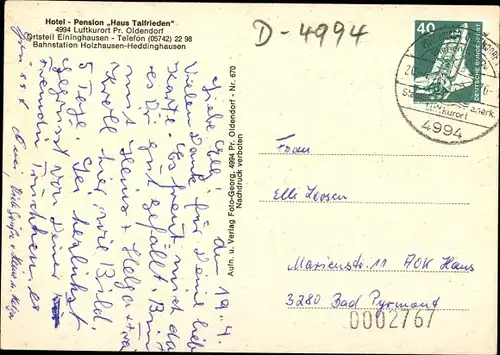 Hotel - Pension „Haus Talfrieden"
4994 Luftkurort Pr. Oldendorf
Ortsteil Eininghausen - Telefon (05742) 22 98
Bahnstation Holzhausen-Heddinghausen
D-4994
40
DEUTSCHE BUNDESPOST
anerk.
Luftkurort
4994
Aufn. u. Verlag Foto-Georg, 4994 Pr. Oldendorf - Nr. 670
Nachdruck verboten
den 19.4.
Liebe Elli!
Vielen Dank für Deine liebe
Karte. Es freut mich das
es Dir gut gefällt. Bin
mit Heinz + Helga
hier, wie Bild.
5 Tage. Sei herzlichst
gegrüsst von Deiner
Freundin
Frau
Elli Loosen
Marienstr. 11 AOK Haus
3280 Bad Pyrmont
0002767